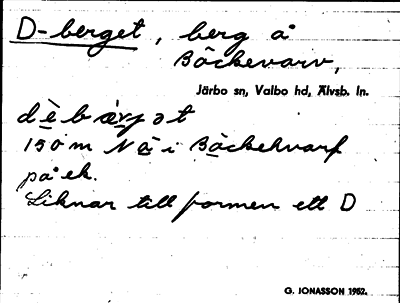 D-berget, berg å
Bäckevarv,
Järbo sn, Valbo hd, Älvsb. ln.
dèbærjət
150 m NÄ i Bäckehvarf
på ek.
Liknar till formen ett D
G. JONASSON 1952.